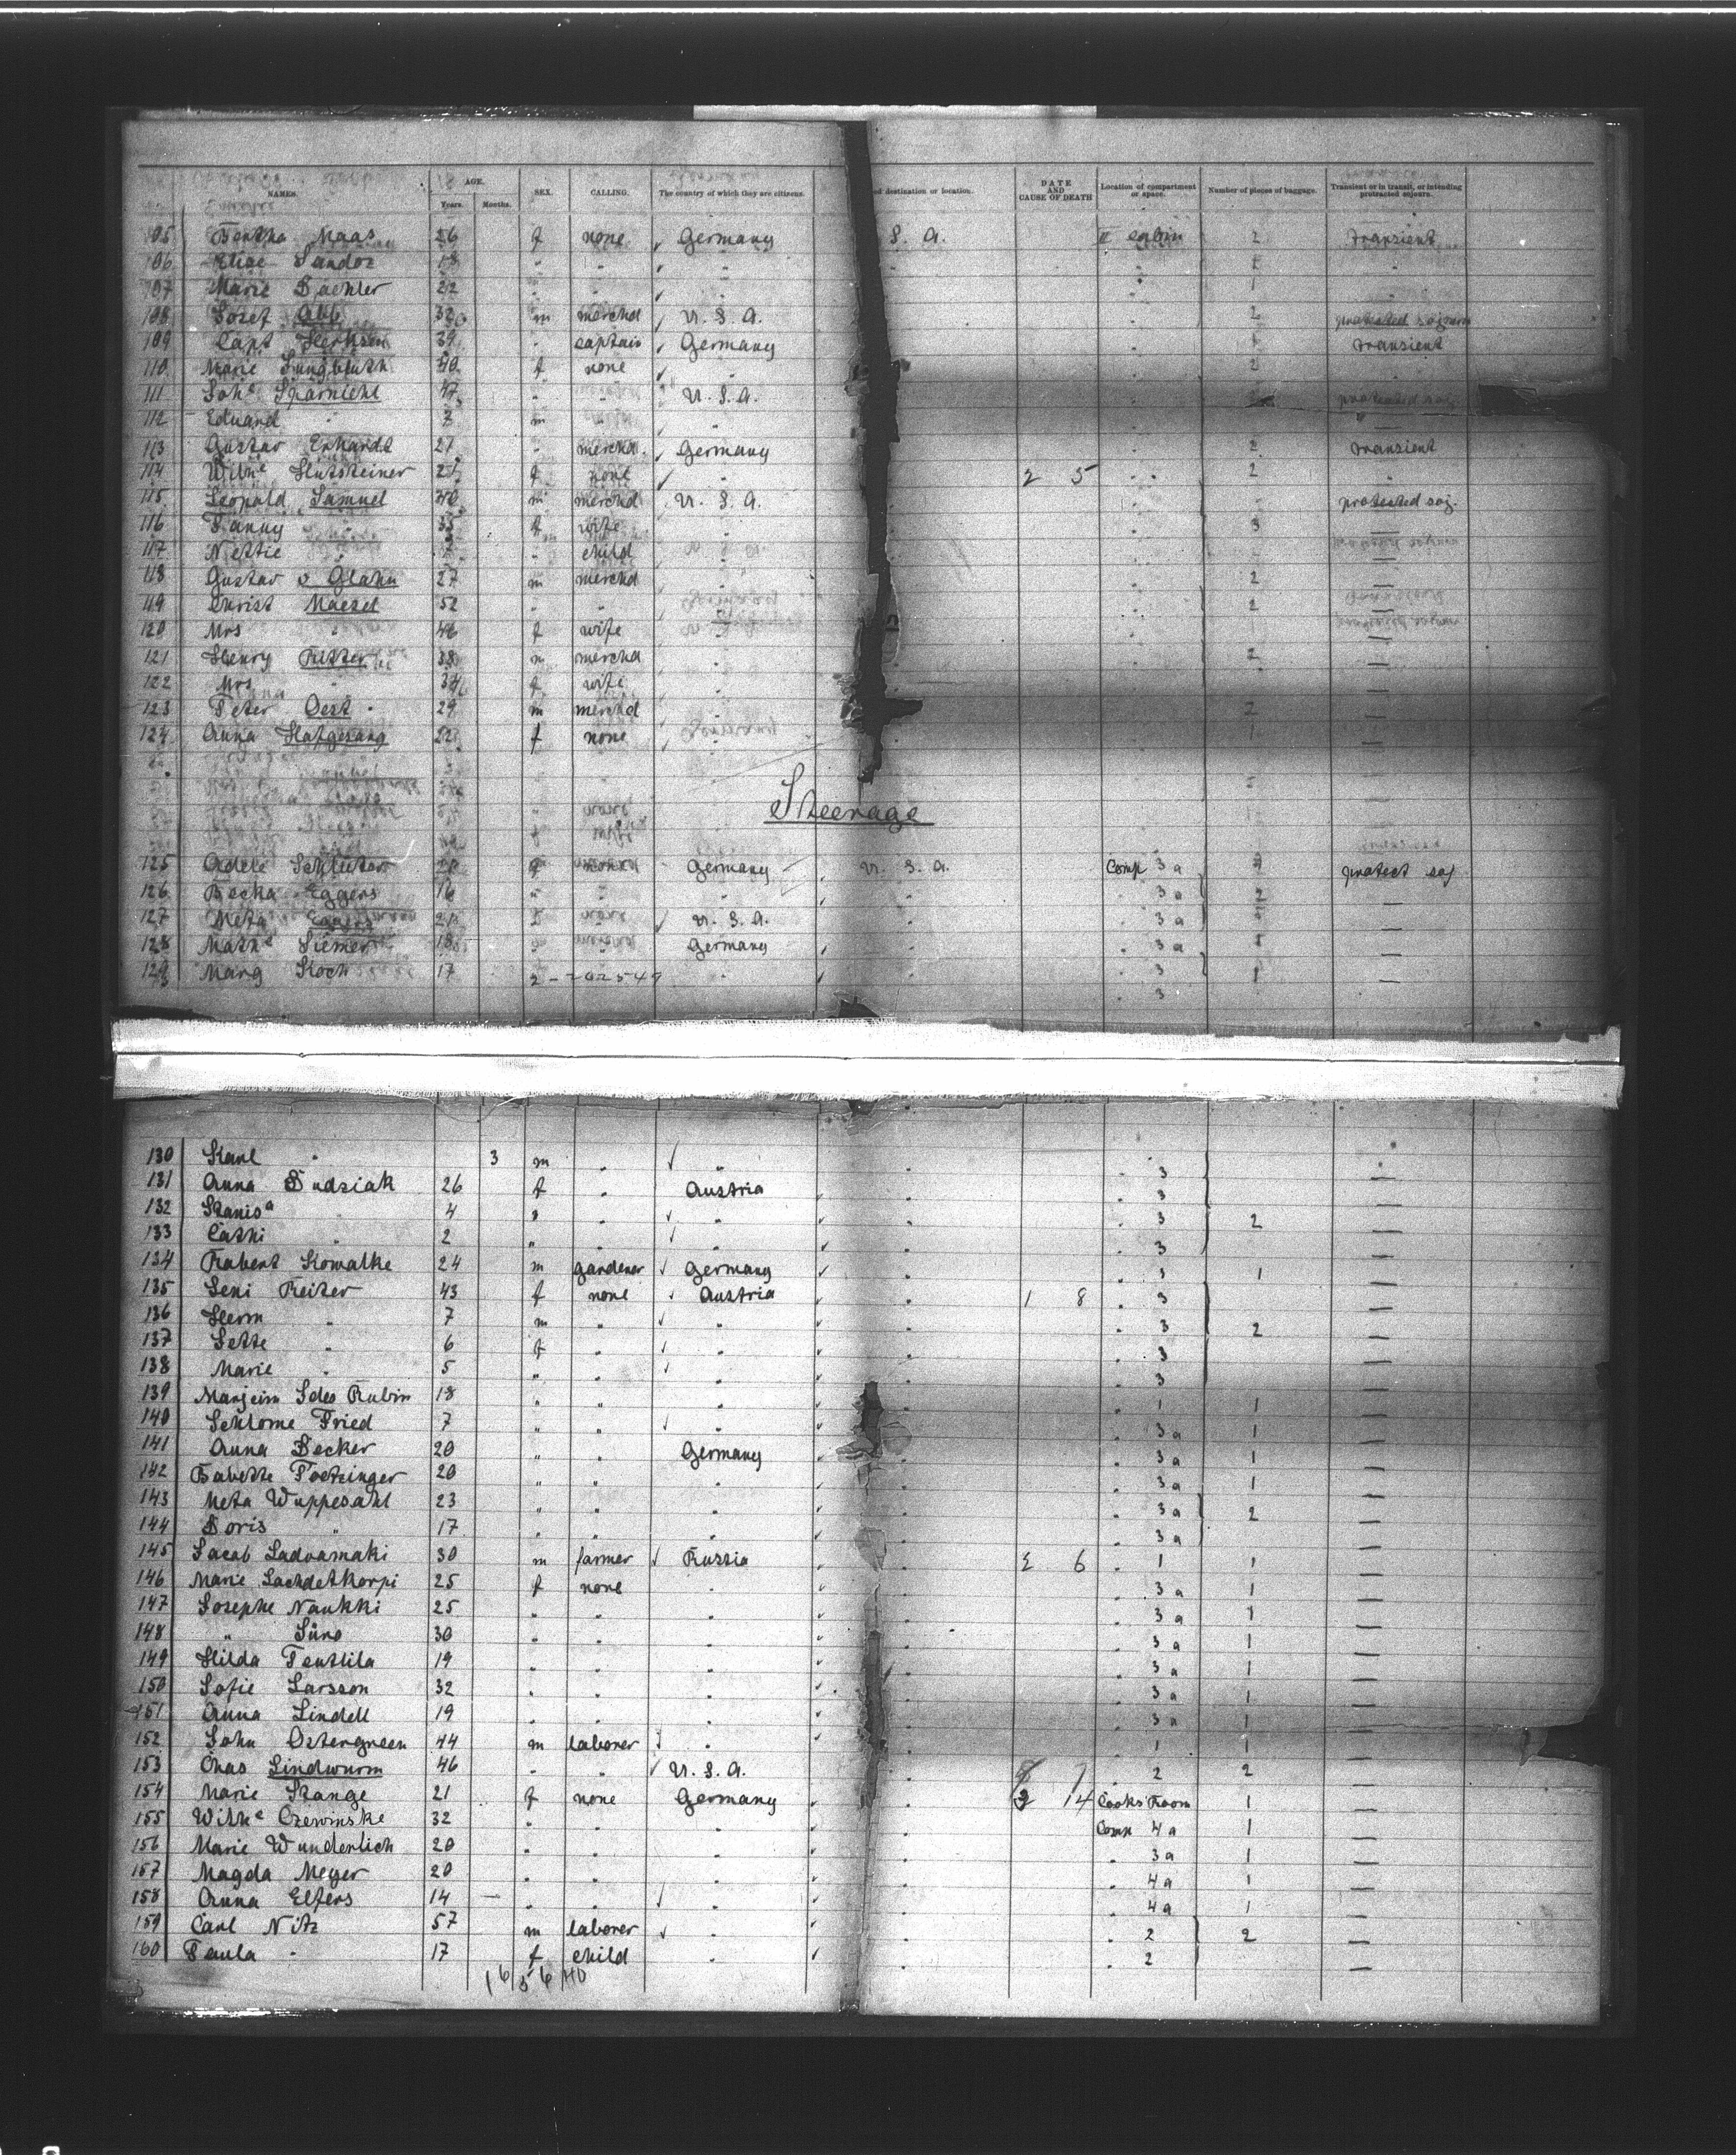 NAMES. AGE. Years. Months. SEX. CALLING. The country of which they are citizens. d destination or location. DATE AND CAUSE OF DEATH Location of compartment or space. Number of pieces of baggage. Transient or in transit, or intending protracted sojourn.
105 Bertha Maas 26 f none Germany S. A. II cabin 2 transient
106 Elise Sandoz 18 " " "
107 Marie Daehler 22 " " " 1
108 Josef 32 m merchd U. S. A. 2 protracted sojourn
109 Capt 39 " captain Germany 1 transient
110 Marie Jungbluth 40 f none " 2
111 Joh^e 47 " " U. S. A. protracted soj.
112 Eduard " 3 m " "
113 Gustav Erhardt 21 " merchd. Germany 2 transient
114 Wilh^e Hutsteiner 21 f none " 2 5 2 "
115 Leopold Samuel 40 m merchd U. S. A. protected soj.
116 Fanny " 33 f wife " 3 —
117 Nettie " child " —
118 Gustav v Glahn 27 m merchd " 2 —
119 Christ Maesel 52 " " " 2 —
120 Mrs " 46 f wife " 1 —
121 Henry 38 m merchd " 2 —
122 Mrs " 34 f wife " —
123 Peter Oest 29 m merchd " 2 —
124 Anna Hafgesang 22 f none " 1 —
Steerage
125 Adele Schlüter 21 f Germany U. S. A. Comp 3a protract soj
126 Becka Eggers 16 " " " 3a 2 —
127 Meta Eggers 21 " U. S. A. " 3a —
128 Math^e Siemer 18 " " Germany " 3a 1 —
129 Marg Koch 17 2 - 202549 " 3 1 —
" 3
130 Karl " 3 m " " " —
131 Anna Dudziak 26 f " Austria " 3 —
132 Stanis^a " 4 " " " " 3 2 —
133 Cathi " 2 " " " " 3 —
134 Robert Kowalke 24 m gardener Germany " 3 1 —
135 Leni Reiter 43 f none Austria 1 8 " 3 —
136 Herm " 7 m " " " 3 2 —
137 Jette " 6 f " " " 3 —
138 Marie " 5 " " " " 3 —
139 Marjeim Ides Rubin 18 " " " " 1 1 —
140 Schlome Fried 7 " " " " 3a 1 —
141 Anna Becker 20 " " Germany " 3a 1 —
142 Babette Poetzinger 20 " " " " 3a 1 —
143 Meta Wuppesahl 23 " " " " 3a 2 —
144 Doris " 17 " " " " 3a —
145 Jacob Ladvamaki 30 m farmer Russia 2 6 " 1 1 —
146 Marie Lachdetkorpi 25 f none " " 3a 1 —
147 Josephe Naukki 25 " " " " 3a 1 —
148 " 30 " " " " 3a 1 —
149 Hilda Penttila 19 " " " " 3a 1 —
150 Sofie Larsson 32 " " " " 3a 1 —
151 Anna Lindell 19 " " " " 3a 1 —
152 John Ostergreen 44 m laborer " " 1 1 —
153 Chas Lindwurm 46 " " U. S. A. " 2 2 —
154 Marie Stange 21 f none Germany 14 Cooks Room 1 —
155 Wilh^e Czewinske 32 " " " Comp 4a 1 —
156 Marie Wunderlich 20 " " " " 3a 1 —
157 Magda Meyer 20 " " " " 4a 1 —
158 Anna Elfers 14 — " " " " 4a 1 —
159 Carl Nitz 57 m laborer " " 2 2 —
160 Paula " 17 f child " " 2 —
16 56 40